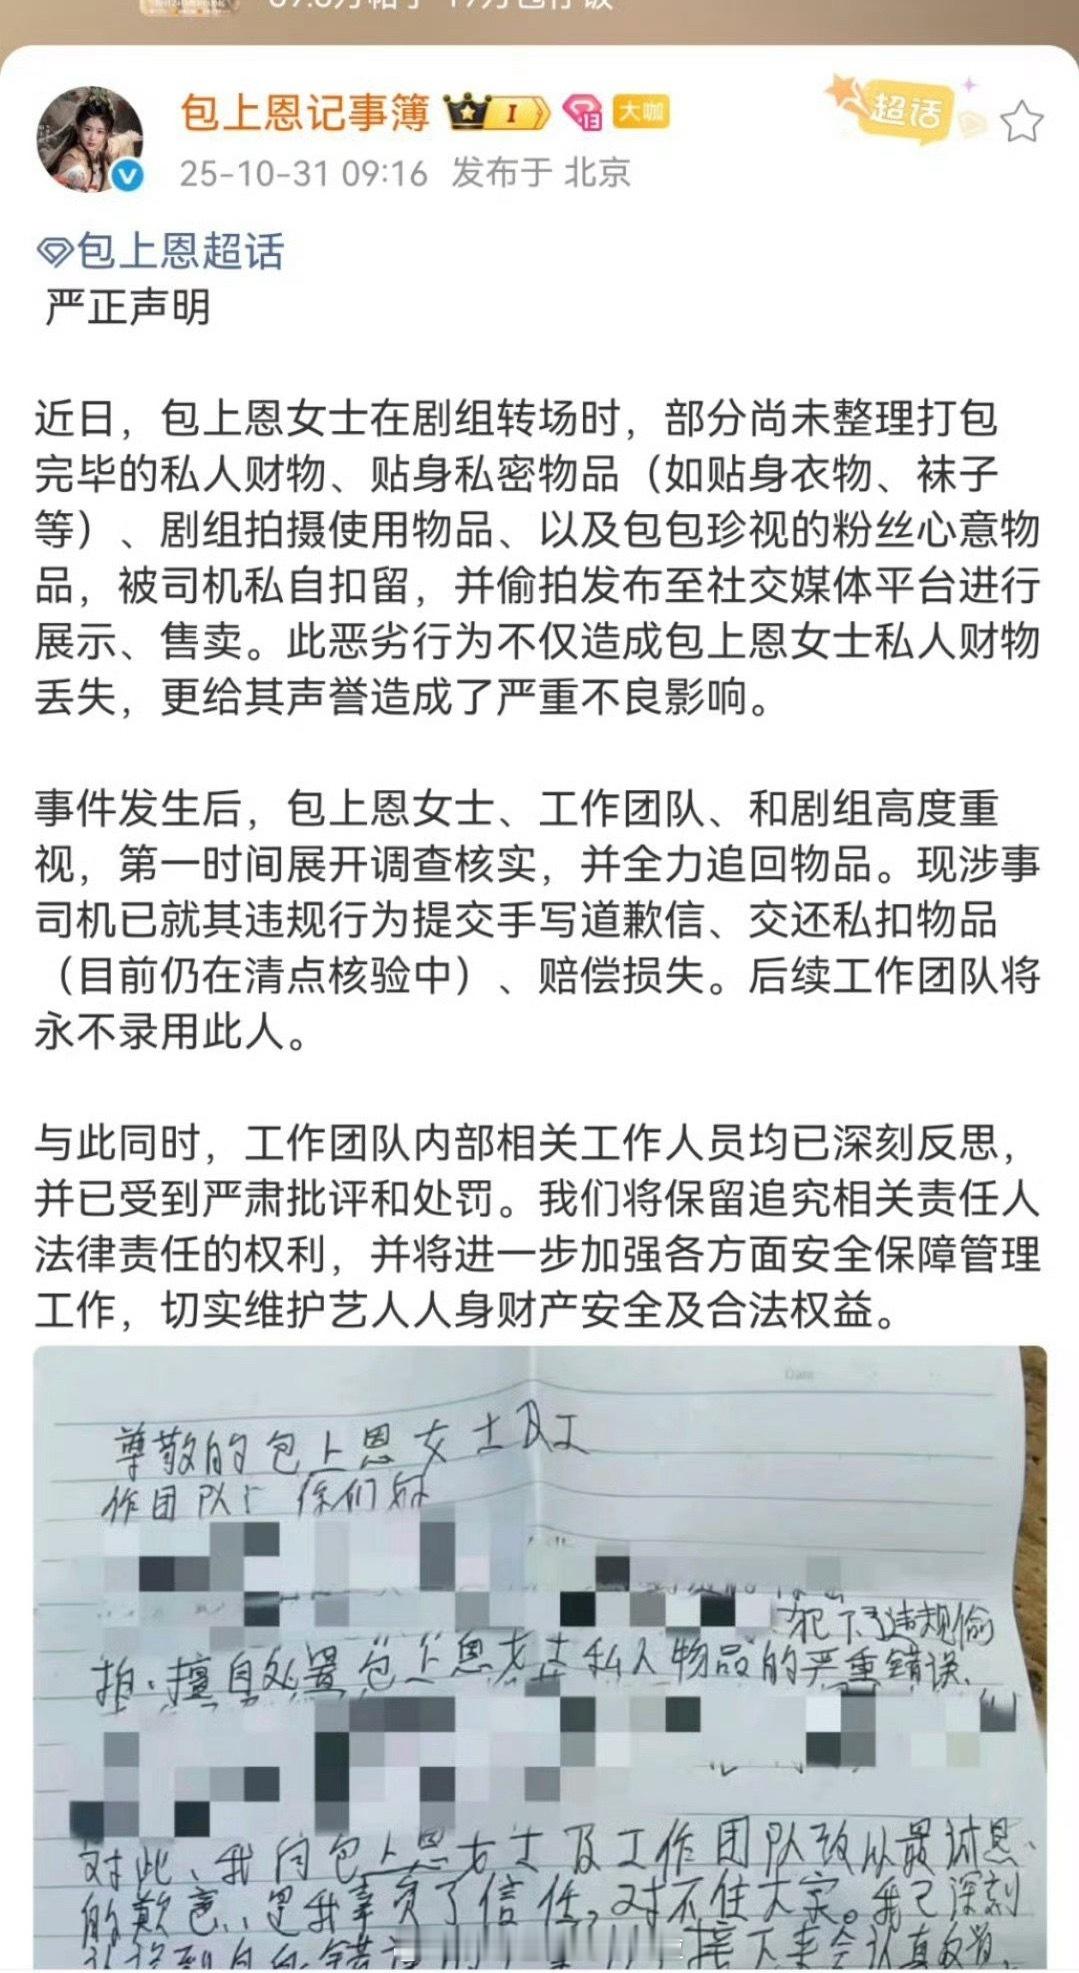 包上恩记事簿 I 13 大咖
超话
25-10-31 09:16 发布于 北京
包上恩超话
严正声明
近日，包上恩女士在剧组转场时，部分尚未整理打包
完毕的私人财物、贴身私密物品（如贴身衣物、袜子
等）、剧组拍摄使用物品、以及包包珍视的粉丝心意物
品，被司机私自扣留，并偷拍发布至社交媒体平台进行
展示、售卖。此恶劣行为不仅造成包上恩女士私人财物
丢失，更给其声誉造成了严重不良影响。
事件发生后，包上恩女士、工作团队、和剧组高度重
视，第一时间展开调查核实，并全力追回物品。现涉事
司机已就其违规行为提交手写道歉信、交还私扣物品
（目前仍在清点核验中）、赔偿损失。后续工作团队将
永不录用此人。
与此同时，工作团队内部相关工作人员均已深刻反思，
并已受到严肃批评和处罚。我们将保留追究相关责任人
法律责任的权利，并将进一步加强各方面安全保障管理
工作，切实维护艺人人身财产安全及合法权益。
Date
尊敬的包上恩女士及工
作团队：你们好
犯下了违规偷
拍、擅自处置包上恩女士私人物品的严重错误。
对此、我向包上恩女士及工作团队致以最诚恳
的歉意，是我辜负了信任，对不住大家。我已深刻
接下来会认真改省